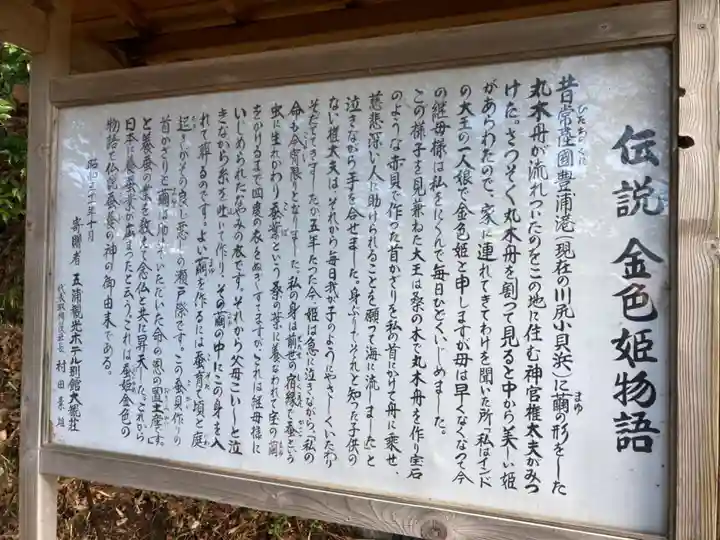 伝説 金色姫物語
昔常陸國豊浦港(現在の川尻小貝浜)に繭の形をした
丸木舟が流れついたのをこの地に住む神官権太夫がみつ
けた。さつそく丸木舟を割って見ると中から美しい姫
があらわれたので、家に連れてきてわけを聞いた所「私はインド
の大王の一人娘で金色姫と申しますが母は早くなくなって今
の継母様は私をにくんで毎日ひどくいじめました。
この様子を見兼ねた大王は桑の木で丸木舟を作り宝石
のような赤貝で作った首かざりを私の首にかけて舟に乗せ、
慈悲深い人に助けられることを願って海に流しました」と
泣きながら手を合せました。身ぶりでそれと知った子供の
ない権太夫は、それから毎日我が子のようにやさしくいたわり
そだててきました。だが五年たつた今、姫は急に泣きながら、「私の
命も今宵限りとなりました。私の身は前世の宿縁で蚕という
虫に生れかわり蚕業という桑の葉に養なわれて宝の繭
をかけるまで四度の衣をぬぎすてますがこれは継母様に
いじめられたなやみの衣です。それから父母こいしと泣
きながら糸を吐いて作りその繭の中にこの身を入
れて葬るのです。よい繭を作るには蚕育て頃と庭
起きがその良し悪しの瀬戸際です。この赤貝作りの
首かざりと繭はいていただいた命の恩の置土産です。」
と養蚕の業を教えて念仏と共に昇天した。これから
日本に養蚕業が広まったと云う。これは蚕姫金色の
物語で仏説蚕養の神の御由来である。
昭和三十一年十月
寄贈者 五浦観光ホテル別館大観荘
代表取締役社長 村田